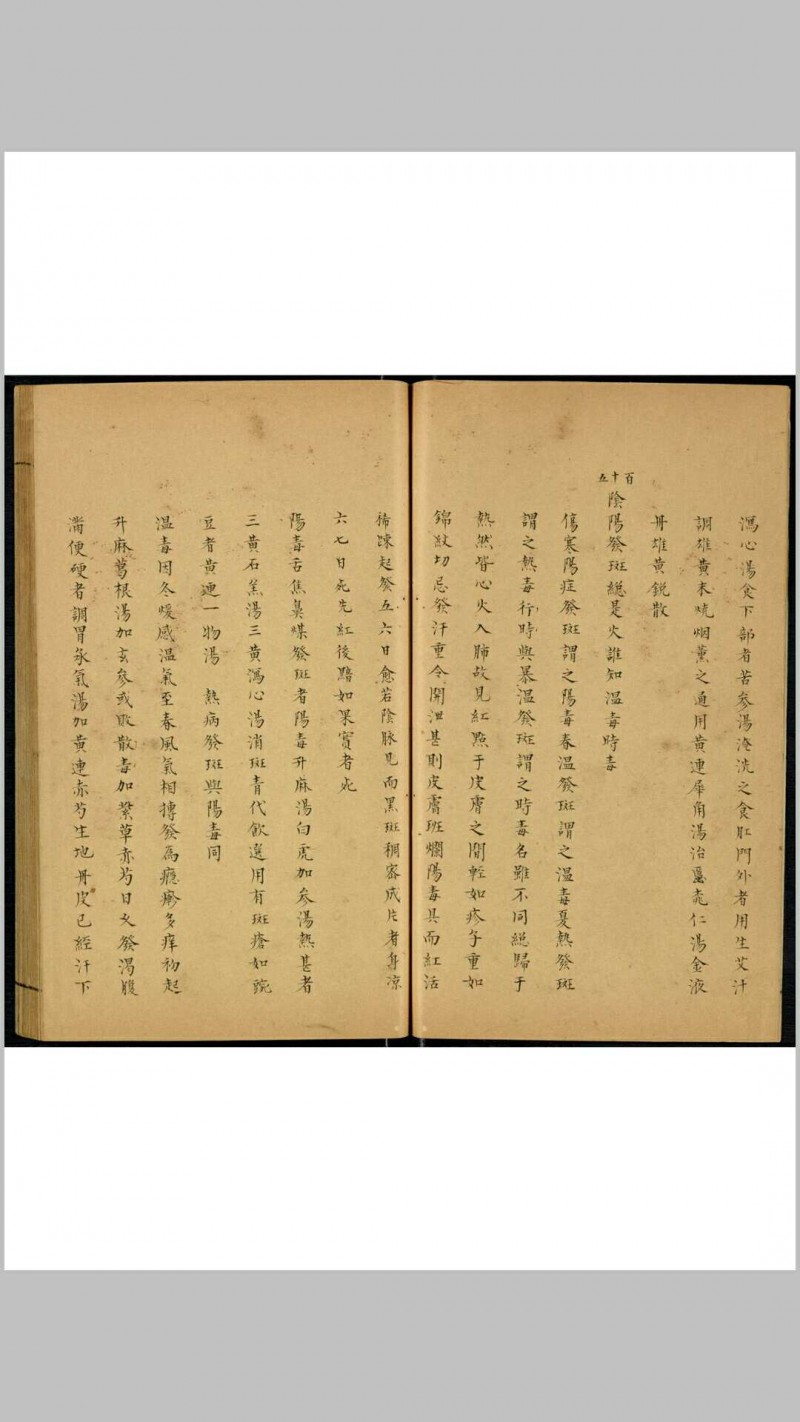 瀉心湯食下部者苦參湯淹洗之食肛門外者用生艾汁
調雄黃末燒烟薰之通用黃連犀角湯治䘌桃仁湯金液
丹雄黃銳散
百十五
陰陽發斑緫是火誰知溫毒時毒
傷寒陽症發斑謂之陽毒春溫發斑謂之溫毒夏熱發斑
謂之熱毒行時與暴溫發斑謂之時毒名雖不同緫歸于
熱然皆心火入肺故見紅點于皮膚之間輕如疹子重如
錦紋切忌發汗重令開泄甚則皮膚班爛陽毒具而紅活
稀踈起發五六日愈若陰脉見而黑斑稠密成片者身凉
六七日死先紅後黯如果實者死
陽毒舌焦鼻煤發斑者陽毒升麻湯白虎加參湯熱甚者
三黃石羔湯三黃瀉心湯消斑青代飲選用有斑瘡如豌
豆者黃連一物湯 熱病發斑與陽毒同
溫毒因冬暖感溫氣至春風氣相搏發為癮疹多痒初起
升麻葛根湯加玄參或敗散毒加紫草赤芍日久發渴腹
滿便硬者調胃承氣湯加黃連赤芍生地丹皮已經汗下